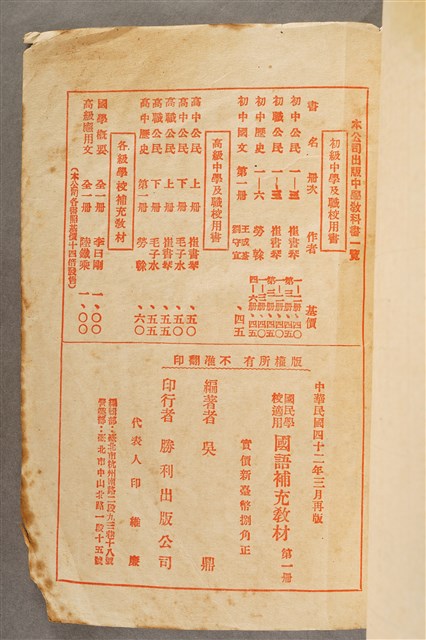 本公司出版中學教科書一覽
初級中學及職校用書
書名 冊次 作者 基價
初中公民 一—三 崔書琴
初職公民 一—三 崔書琴
初中歷史 一—六 勞榦
初中國文 第一冊 、四五
高級中學及職校用書
高中公民 上冊 崔書琴 、五〇
高中公民 下冊 毛子水 、五〇
高職公民 上冊 崔書琴 、五五
高職公民 下冊 毛子水 、五五
高中歷史 第一冊 勞榦 、六〇
各級學校補充教材
國學概要 全一冊 李曰剛 一、〇〇
高級應用文 全一冊 陸鐵乘 一、〇〇
(本公司各書照基價十四倍發售)
中華民國四十二年三月再版
國民學校適用 國語補充教材 第一冊
實價新臺幣捌角正
版權所有 不准翻印
編著者 吳鼎
印行者 勝利出版公司
代表人 印維廉
編輯部:臺北市杭州南路二段九三巷十八號
發行部:臺北市中山北路一段十五號